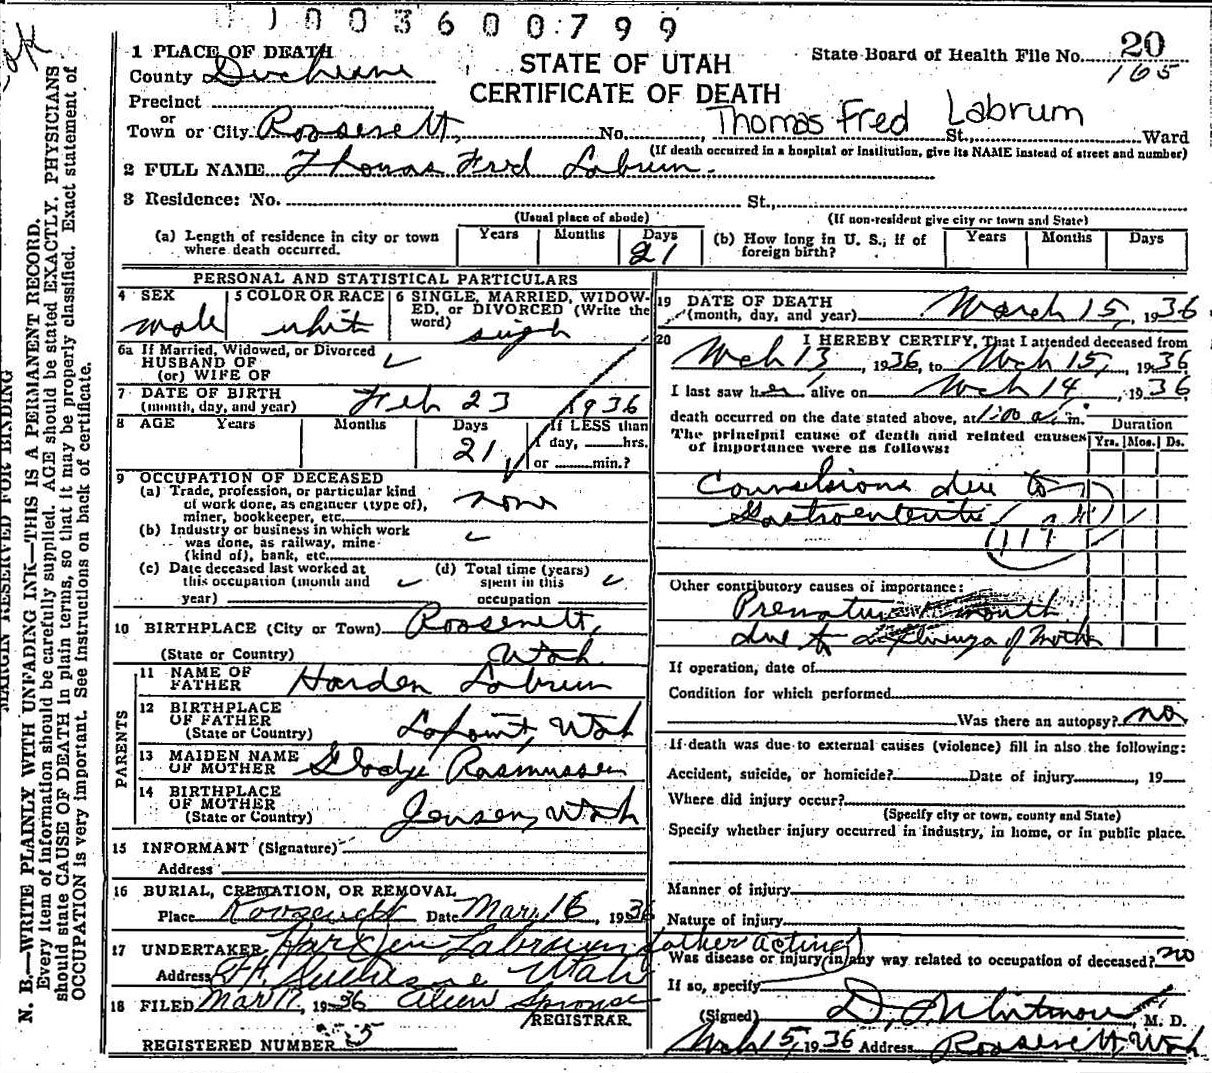 003600799
1 PLACE OF DEATH
County Duchesne
STATE OF UTAH
CERTIFICATE OF DEATH
State Board of Health File No. 20
165
Precinct
or
Town or City Roosevelt, No. , Thomas Fred Labrum St., Ward
(If death occurred in a hospital or institution, give its NAME instead of street and number)
2 FULL NAME Thomas Fred Labrum.
3 Residence: No. St.,
(Usual place of abode) (If non-resident give city or town and State)
(a) Length of residence in city or town where death occurred. Years Months Days 21
(b) How long in U. S., if of foreign birth? Years Months Days
PERSONAL AND STATISTICAL PARTICULARS
4 SEX male
5 COLOR OR RACE white
6 SINGLE, MARRIED, WIDOWED, or DIVORCED (Write the word) single
6a If Married, Widowed, or Divorced
HUSBAND OF
(or) WIFE OF
7 DATE OF BIRTH
(month, day, and year) Feb 23 1936
8 AGE Years Months Days 21
If LESS than 1 day, hrs.
or min.?
9 OCCUPATION OF DECEASED
(a) Trade, profession, or particular kind
of work done, as engineer (type of),
miner, bookkeeper, etc. none
(b) Industry or business in which work
was done, as railway, mine
(kind of), bank, etc.
(c) Date deceased last worked at
this occupation (month and
year)
(d) Total time (years)
spent in this
occupation
10 BIRTHPLACE (City or Town) Roosevelt,
(State or Country) Utah
PARENTS
11 NAME OF
FATHER Harden Labrum
12 BIRTHPLACE
OF FATHER
(State or Country) Lapoint, Utah
13 MAIDEN NAME
OF MOTHER Gladys Rasmussen
14 BIRTHPLACE
OF MOTHER
(State or Country) Jensen, Utah
15 INFORMANT (Signature)
Address
16 BURIAL, CREMATION, OR REMOVAL
Place Roosevelt Date Mar. 16, 1936
17 UNDERTAKER Harden Labrum father acting
Address Duchesne Utah
18 FILED Mar 17, 1936 Eileen Sprouse
REGISTRAR
REGISTERED NUMBER 5
19 DATE OF DEATH
(month, day, and year) March 15, 1936
20 I HEREBY CERTIFY, That I attended deceased from
Mch 13, 1936, to Mch 15, 1936
I last saw her alive on Mch 14, 1936
death occurred on the date stated above, at 1:00 a. m.
Duration
Yrs. Mos. Ds.
The principal cause of death and related causes
of importance were as follows:
Convulsions due to
Gastroenteritis
119
Other contributory causes of importance:
Premature month
due to influenza of mother
If operation, date of
Condition for which performed
Was there an autopsy? no
If death was due to external causes (violence) fill in also the following:
Accident, suicide, or homicide? Date of injury , 19
Where did injury occur?
(Specify city or town, county and State)
Specify whether injury occurred in industry, in home, or in public place.
Manner of injury
Nature of injury
Was disease or injury in any way related to occupation of deceased? no
If so, specify
(Signed) Whitmore, M. D.
Mch 15, 1936 Address Roosevelt, Utah
MARGIN RESERVED FOR BINDING
N. B.—WRITE PLAINLY WITH UNFADING INK—THIS IS A PERMANENT RECORD.
Every item of information should be carefully supplied. AGE should be stated EXACTLY. PHYSICIANS
should state CAUSE OF DEATH in plain terms, so that it may be properly classified. Exact statement of
OCCUPATION is very important. See instructions on back of certificate.